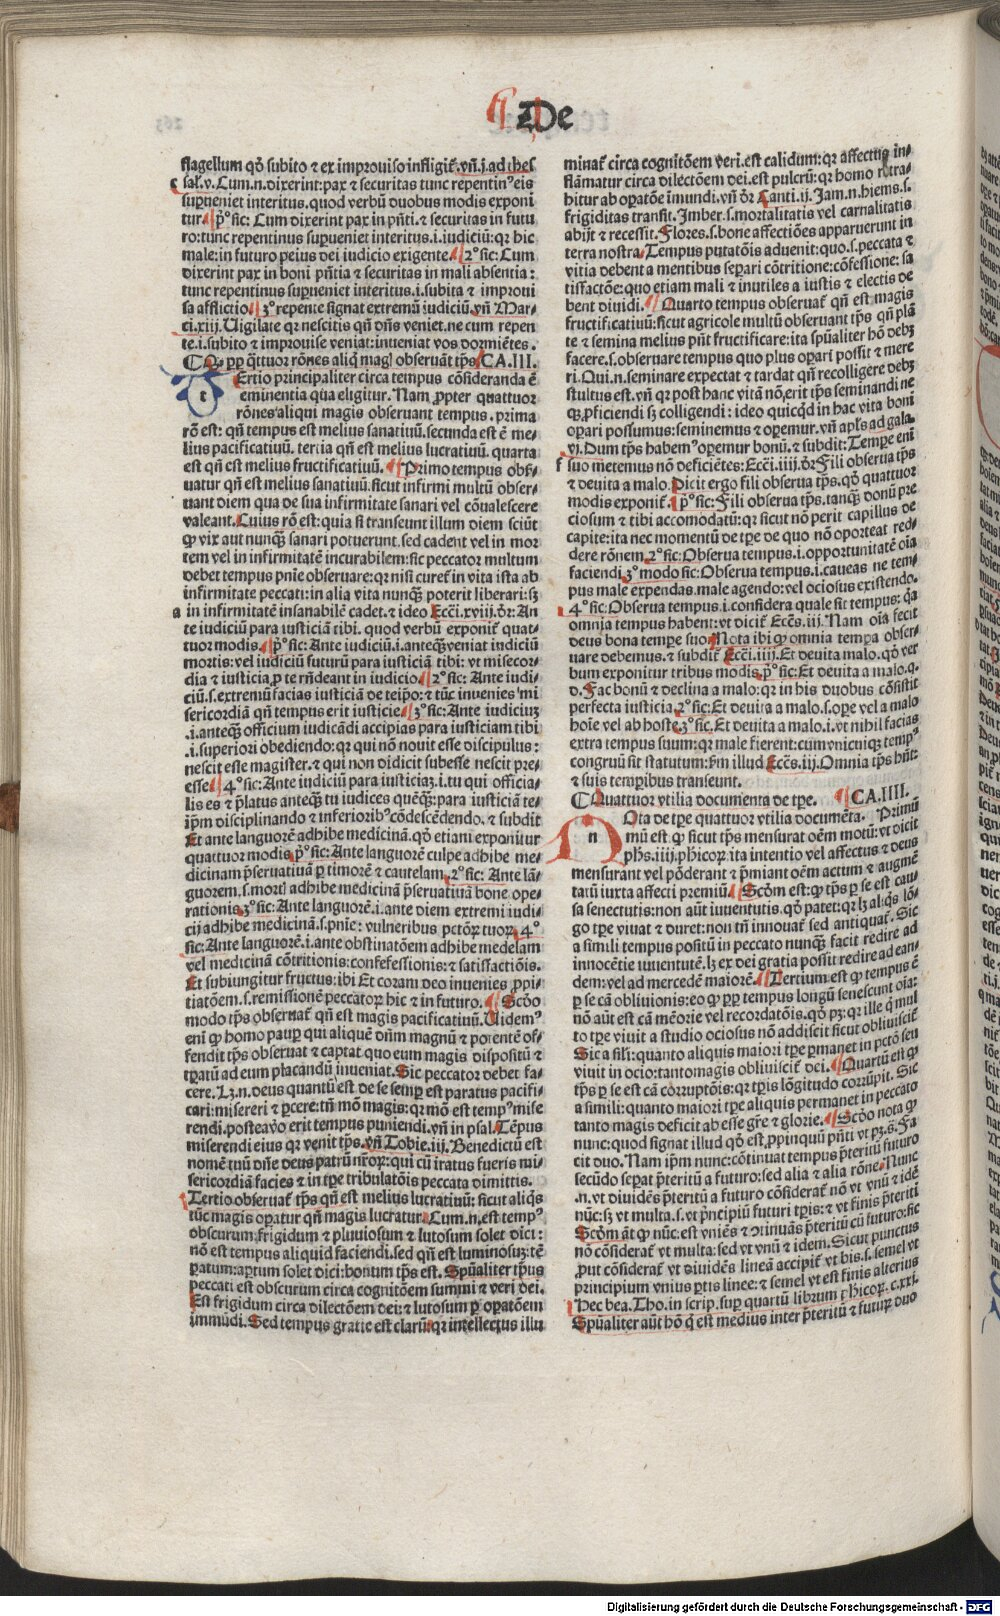 De
flagellum qð subito ⁊ ex improuiso infligit̃.vñ.j.ad thes
sal̃.v.Cum.n.dixerint:pax ⁊ securitas tunc repentinꝰ eis
suꝑueniet interitus.quod verbũ duobus modis exponi
tur.p̊ sic: Cum dixerint pax in pñti.⁊ securitas in futu
ro:tunc repentinus suꝑueniet interitus.i.iudiciũ:qꝛ hic
male:in futuro peius dei iudicio exigente.2º sic:Cum
dixerint pax in boni pñtia ⁊ securitas in mali absentia:
tunc repentinus suꝑueniet interitus.i.subita ⁊ improui
sa afflictio.3º repente signat extremũ iudiciũ.vñ Mar⸗
ci.xiii.Uigilate qꝛ nescitis qñ dñs veniet.ne cum repen
te.i.subito ⁊ improuise veniat:inueniat vos dormiẽtes.
Q ꝓp q̃ttuor rõnes aliq̃ magʹ obseruãt tp̃s.CA.III.
Ertio principaliter circa tempus cõsideranda ẽ
t
eminentia qua eligitur. Nam ꝓpter quattuor
rõnes aliqui magis obseruant tempus. prima
rõ est: qñ tempus est melius sanatiuũ.secunda est ẽ me⸗
lius pacificatiuũ. tertia qñ est melius lucratiuũ. quarta
est qñ est melius fructificatiuũ. Primo tempus obs̃⸗
uatur qñ est melius sanatiuũ.sicut infirmi multũ obser⸗
uant diem qua de sua infirmitate sanari vel cõualescere
valeant.Cuius rõ est: quia si transeunt illum diem sciũt
ꝙ vix aut nunqꝫ sanari potuerunt.sed cadent vel in mor
tem vel in infirmitatẽ incurabilem:sic peccator multum
debet tempus pnĩe obseruare:qꝛ nisi curet̃ in vita ista ab
infirmitate peccati:in alia vita nunqꝫ poterit liberari:sꝫ
a in infirmitatẽ insanabilẽ cadet.⁊ ideo Ecci.xviii.ðꝛ:An
te iudiciũ para iusticiã tibi. quod verbũ exponit̃ quat⸗
tuor modis.p̊ sic: Ante iudiciũ.i.anteqꝫ veniat iudiciũ
mortis:vel iudiciũ futurũ para iusticiã tibi: vt misecor⸗
dia ⁊ iusticia ꝓ te rñdeant in iudicio.2º sic: Ante iudi⸗
ciũ.s.extremũ facias iusticiã de teip̃o:⁊ tũc inuenies mi
sericordiã qñ tempus erit iusticie.3º sic:Ante iudiciuꝫ
.i.anteqꝫ officium iudicãdi accipias para iusticiam tibi
.i.superiori obediendo:qꝛ qui nõ nouit esse discipulus:
nescit esse magister.⁊ qui non didicit subesse nescit pre⸗
esse.4º sic:Ante iudiciũ para iusticiaꝫ.i.tu qui officia⸗
lis es ⁊ p̃latus anteqꝫ tu iudices quẽqꝫ:para iusticiã te⸗
ip̃m disciplinando ⁊ inferioribꝰ cõdescẽdendo.⁊ subdit
Et ante languorẽ adhibe medicinã.qð etiani exponitur
quattuor modis.p̊ sic:Ante languorẽ culpe adhibe me⸗
dicinam p̃seruatiuã ꝑ timorẽ ⁊ cautelam.2º sic: Ante lã⸗
guorem.s.mortʹ adhibe medicinã p̃seruatiuã bone ope⸗
rationis.3º sic:Ante languorẽ.i.ante diem extremi iudi⸗
cij adhibe medicinã.s.pnĩe: vulneribus pctõꝝ tuoꝝ.4º
sic:Ante languorẽ.i.ante obstinatõem adhibe medelam
vel medicinã cõtritionis:confefessionis:⁊ satisfactiõis.
Et subiungitur fructus:ibi Et coram deo inuenies ꝓpi⸗
tiatõem.s.remissionẽ peccatoꝝ hic ⁊ in futuro. Scðo
modo tp̃s obseruat̃ qñ est magis pacificatiuũ.Uidemꝰ
eni ꝙ homo pauꝑ qui aliquẽ dñm magnũ ⁊ potentẽ of⸗
fendit tp̃s obseruat ⁊ captat quo eum magis dispositũ ⁊
tꝑatũ ad eum placandũ inueniat.Sic peccator debet fa⸗
cere.Lꝫ.n.deus quantũ est de se semꝑ est paratus pacifi⸗
cari:misereri ⁊ ꝑcere:tñ mõ magis:qꝛ mõ est tempꝰ mise
rendi.postea vo erit tempus puniendi.vñ in psal.Tẽpus
miserendi eius qꝛ venit tp̃s.vñ Tobie.iij.Benedictũ est
nomẽ tuũ dñe deus patrũ nr̃oꝝ:qui cũ iratus fueris mi⸗
sericordiã facies ⁊ in tꝑe tribulatõis peccata dimittis.
Tertio obseruat̃ tp̃s qñ est melius lucratiuũ: sicut aliqs
tũc magis oꝑatur qñ magis lucratur.Cum.n.est tempꝰ
obscurum:frigidum ⁊ pluuiosum ⁊ lutosum solet dici:
nõ est tempus aliquid faciendi.sed qñ est luminosuꝫ:tẽ
ꝑatum:aꝑtum solet dici:bonum tp̃s est.Spũaliter tp̃us
peccati est obscurum circa cognitõem summi ⁊ veri dei.
Est frigidum circa dilectõem dei:⁊ lutosum ꝑ oꝑatõem
immũdi.Sed tempus gratie est clarũ:qꝛ intellectus illu
minat̃ circa cognitõem veri.est calidum:qꝛ affectus in⸗
flãmatur circa dilectõem dei.est pulcrũ:qꝛ homo retra⸗
hitur ab oꝑatõe immundi.vñ ðꝛ Canti.ij.Jam.n.hiems.s.
frigiditas transit.Jmber.s.mortalitatis vel carnalitatis
abijt ⁊ recessit.Flores.s.bone affectiões apparuerunt in
terra nostra.Tempus putatõis aduenit:quo.s.peccata ⁊
vitia debent a mentibus seꝑari cõtritione:cõfessione:sa
tisfactõe:quo etiam mali ⁊ inutiles a iustis ⁊ electis de
bent diuidi. Quarto tempus obseruat̃ qñ est magis
fructificatiuũ:sicut agricole multũ obseruant tp̃s qñ plã
te ⁊ semina melius pñt fructificare:ita spũaliter hõ debꝫ
facere.s.obseruare tempus quo plus oꝑari possit ⁊ mere
ri.Qui.n.seminare expectat ⁊ tardat qñ recolligere debꝫ
stultus est.vñ qꝛ post hanc vitã nõ erit tp̃s seminandi ne
qꝫ ꝓficiendi sꝫ colligendi: ideo quicqd in hac vita boni
oꝑari possumus:seminemus ⁊ oꝑemur.vñ apl̃s ad gala.
vi.Dum tp̃s habemꝰ oꝑemur bonũ.⁊ subdit:Tempe eni
f suo metemus nõ deficiẽtes:Ecci.iiij.ðꝛ Fili obserua tp̃s
⁊ deuita a malo.Dicit ergo fili obserua tp̃s.qð quattuor
modis exponit̃.p̊ sic:Fili obserua tp̃s.tanqꝫ donũ pre
ciosum ⁊ tibi accomodatũ:qꝛ sicut nõ perit capillus de
capite:ita nec momentũ de tꝑe de quo nõ oporteat red⸗
dere rõnem.2º sic:Obserua tempus.i.opportunitatẽ oĩa
faciendi.3º modo sic:Obserua tempus.i.caueas ne tem⸗
pus male expendas.male agendo:vel ociosus existendo.
4º sic:Obserua tempus.i.considera quale sit tempus: q̃a
omnia tempus habent:vt dicit̃ Eccs.iii.Nam oĩa fecit
deus bona tempe suo.Nota ibi ꝙ omnia tempa obser⸗
uare debemus.⁊ subdit̃ Ecci.iiij.Et deuita malo.qð ver
bum exponitur tribus modis.p̊ sic:Et deuita a malo.q.
d.Fac bonũ ⁊ declina a malo:qꝛ in his duobus cõsistit
perfecta iusticia.2º sic:Et deuita a malo.s.oꝑe vel a malo
hoĩe vel ab hoste.3º sic.Et deuita a malo.i.vt nihil facias
extra tempus suum:qꝛ male fierent:cum vnicuiqꝫ tempꝰ
congruũ sit statutum:ẜm illud Eccs.iij.Omnia tp̃s hñt:
⁊ suis tempibus transeunt.
Quattuor vtilia documenta de tꝑe. CA.IIII.
Ota de tꝑe quattuor vtilia documẽta. Primũ
n
mũ est ꝙ sicut tp̃s mensurat oẽm motũ:vt dicit
ph̃s.iiij.phicoꝝ:ita intentio vel affectus ⁊ deus
mensurant vel põderant ⁊ p̃miant oẽm actum ⁊ augmẽ
tatũ iuxta affecti premiũ.Scðm est:ꝙ tp̃s ꝑ se est cau⸗
sa senectutis:non aũt iuuentutis.qð patet:qꝛ lꝫ al̃qs lõ⸗
go tꝑe viuat ⁊ duret:non tñ innouat̃ sed antiquat̃. Sic
a simili tempus positũ in peccato nunqꝫ facit redire ad
innocẽtie iuuentutẽ.lꝫ ex dei gratia possit redire ad ean⸗
dem:vel ad mercedẽ maiorẽ.Tertium est ꝙ tempus ẽ
ꝑ se cã obliuionis:eo ꝙ ꝓp tempus longũ senescunt oĩa:
nõ aũt est cã mẽorie vel recordatõis.qð pꝫ:qꝛ ille q mul
to tꝑe viuit a studio ociosus nõ addiscit sicut obliuiscit̃
Sic a sil̃i:quanto aliquis maiori tꝑe ꝑmanet in pctõ seu
viuit in ocio:tantomagis obliuiscit̃ dei. Quartũ est ꝙ
tp̃s ꝑ se est cã corruptõis:qꝛ tꝑis lõgitudo corrũpit. Sic
a simili:quanto maiori tꝑe aliquis permanet in peccato
tanto magis deficit ab esse gr̃e ⁊ glorie.Scðo nota ꝙ
nunc:quod signat illud qð est ꝓpinquũ pñti vt pꝫ.6.Fa
cit duo.Nam ip̃m nunc:cõtinuat tempus p̃teritũ futuro
secũdo seꝑat p̃teritũ a futuro:sed alia ⁊ alia rõne.Nunc
.n.vt diuidẽs p̃teritũ a futuro cõsiderat̃ nõ vt vnũ ⁊ idẽ
nũc:sꝫ vt multa.s.vt p̃ncipiũ futuri tꝑis:⁊ vt finis p̃teriti
Scðm ãt ꝙ nũc:est vniẽs ⁊ ꝯtinuãs p̃teritũ cũ futuro:sic
nõ cõsiderat̃ vt multa:sed vt vnũ ⁊ idem.Sicut punctus
ꝓut cõsiderat̃ vt diuidẽs lineã accipit̃ vt bis.s.semel vt
principium vnius ꝑtis linee:⁊ semel vt est finis alterius
Hec bea.Tho.in scrip.suꝑ quartũ librum phicoꝝ.c.xxi.
Spũaliter aũt hõ q̃ est medius inter p̃teritũ ⁊ futuꝝ duo
Digitalisierung gefördert durch die Deutsche Forschungsgemeinschaft - DFG